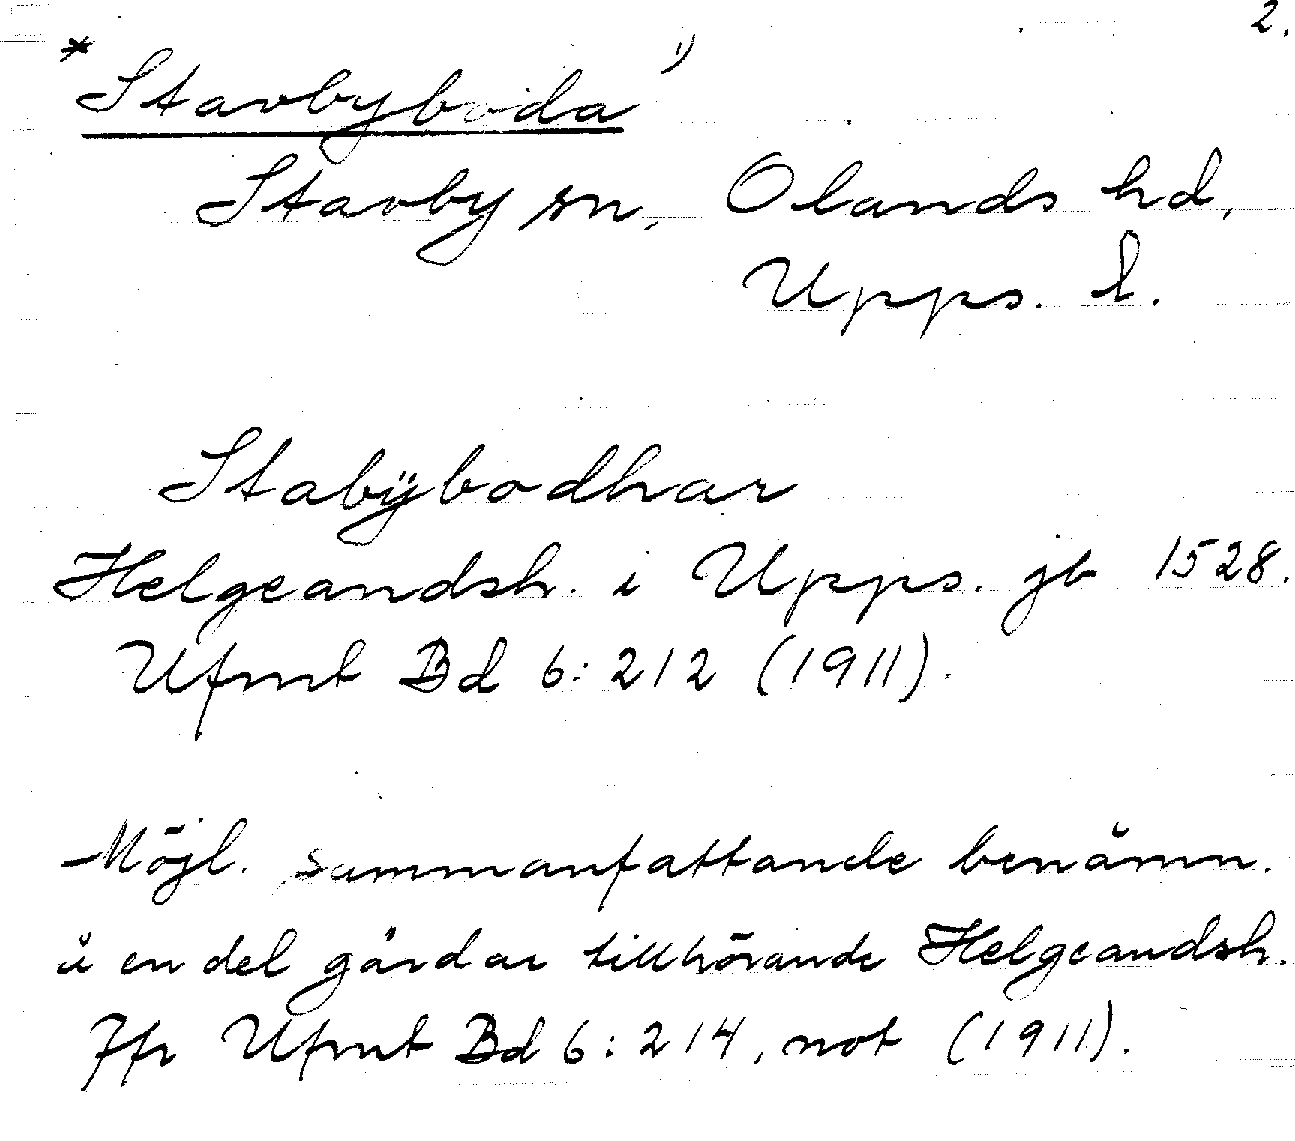 2.
*Stavbyboda 1)
Stavby sn, Olands hd,
Upps. l.
Stabÿbodhar
Helgeandsh. i Upps. jb 1528.
Ufmt Bd 6:212 (1911).
Möjl. sammanfattande benämn.
å en del gårdar tillhörande Helgeandsh.
Jfr Ufmt Bd 6:214, not (1911).